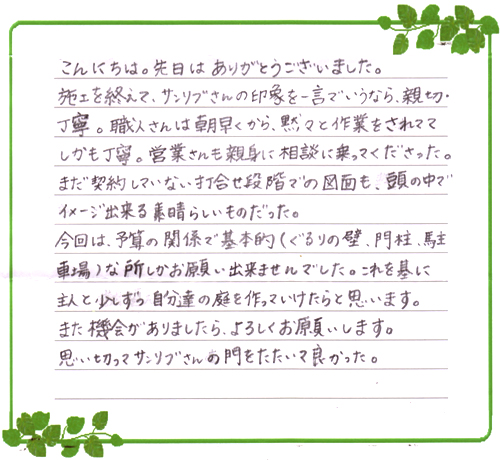 こんにちは。先日はありがとうございました。
施工を終えて、サンリブさんの印象を一言でいうなら、親切・
丁寧。職人さんは朝早くから、黙々と作業をされてて
しかも丁寧。営業さんも親身に相談に乗ってくださった。
まだ契約していない打合せ段階での図面も、頭の中で
イメージ出来る素晴らしいものだった。
今回は、予算の関係で基本的(ぐるりの壁、門柱、駐
車場)な所しかお願い出来ませんでした。これを基に
主人と少しずつ自分達の庭を作っていけたらと思います。
また機会がありましたら、よろしくお願いします。
思い切ってサンリブさんの門をたたいて良かった。